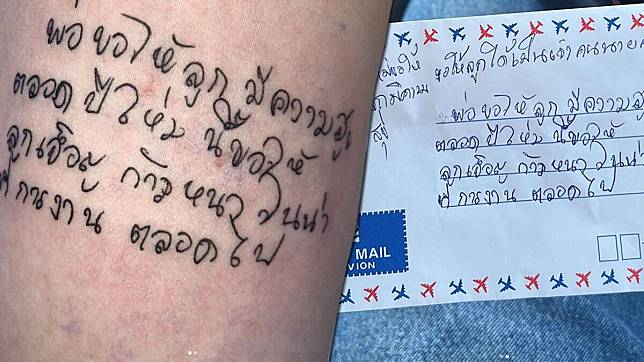 พ่อขอให้ลูกมีความสุข
ตลอดปีใหม่ นี้ขอให้
ลูกเฮือญ ก้าวหนาวันน่า
การงาน ตลอดไป
ขอให้ลูกได้เป็นเจ้าคนนาย
พ่อขอให้ลูก มีความสุข
ตลอดปีใหม่ นี้ขอให้
ลูกเฮือญ ก้าวหนาวันน่า
การงาน ตลอดไป
MAIL
VION